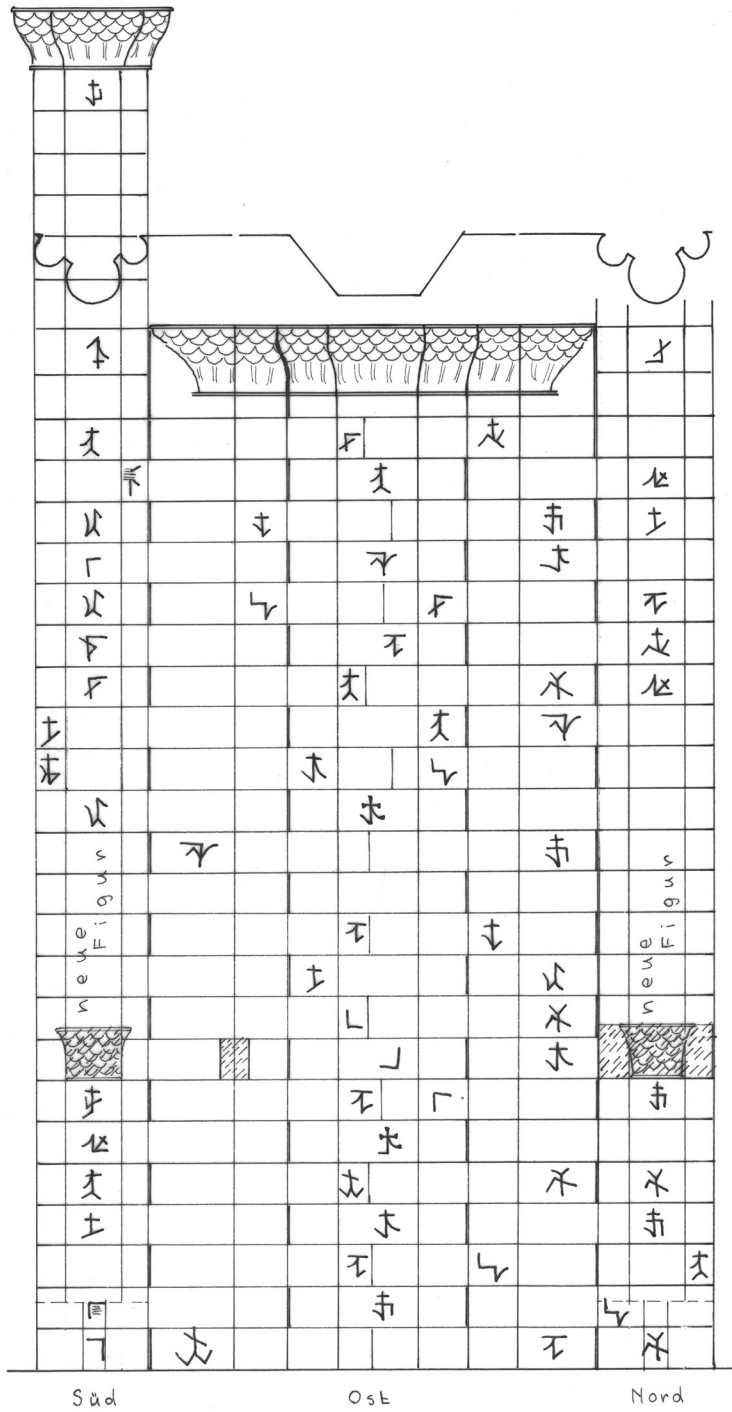 neue
Figur
neue
Figur
Süd Ost Nord